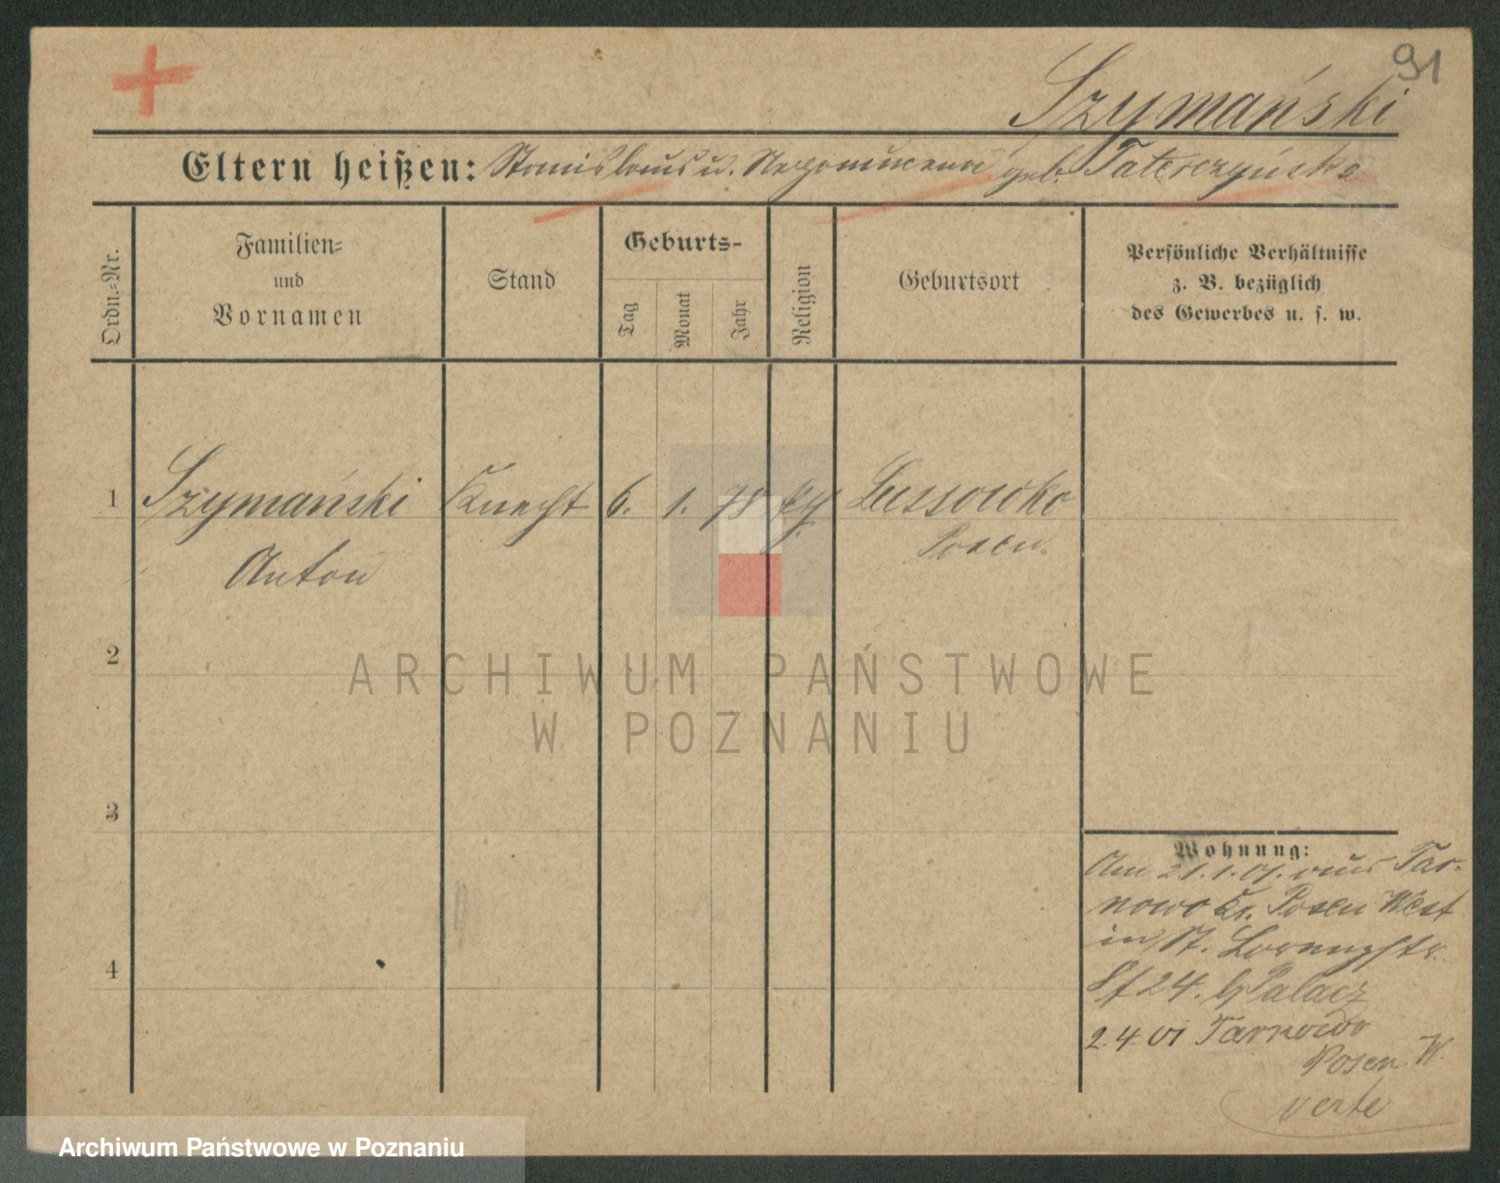 91
Szymański
Eltern heißen: Stanislaus u. Nepomucena geb.
Ordn.-Nr.
Familien-
und
Vornamen
Stand
Geburts-
Tag
Monat
Jahr
Religion
Geburtsort
Persönliche Verhältnisse
z. B. bezüglich
des Gewerbes u. s. w.
1 Szymański Knecht 6. 1. 78 Lussowko
Anton Posen.
2
3
4
Wohnung:
Am 21.1.01. aus Tar-
nowo Kr. Posen West
in St. Lorenzstr.
24. b/ Palacz
2.4.01 Tarnowo
Posen W.
verte
ARCHIWUM PAŃSTWOWE
W POZNANIU
Archiwum Państwowe w Poznaniu